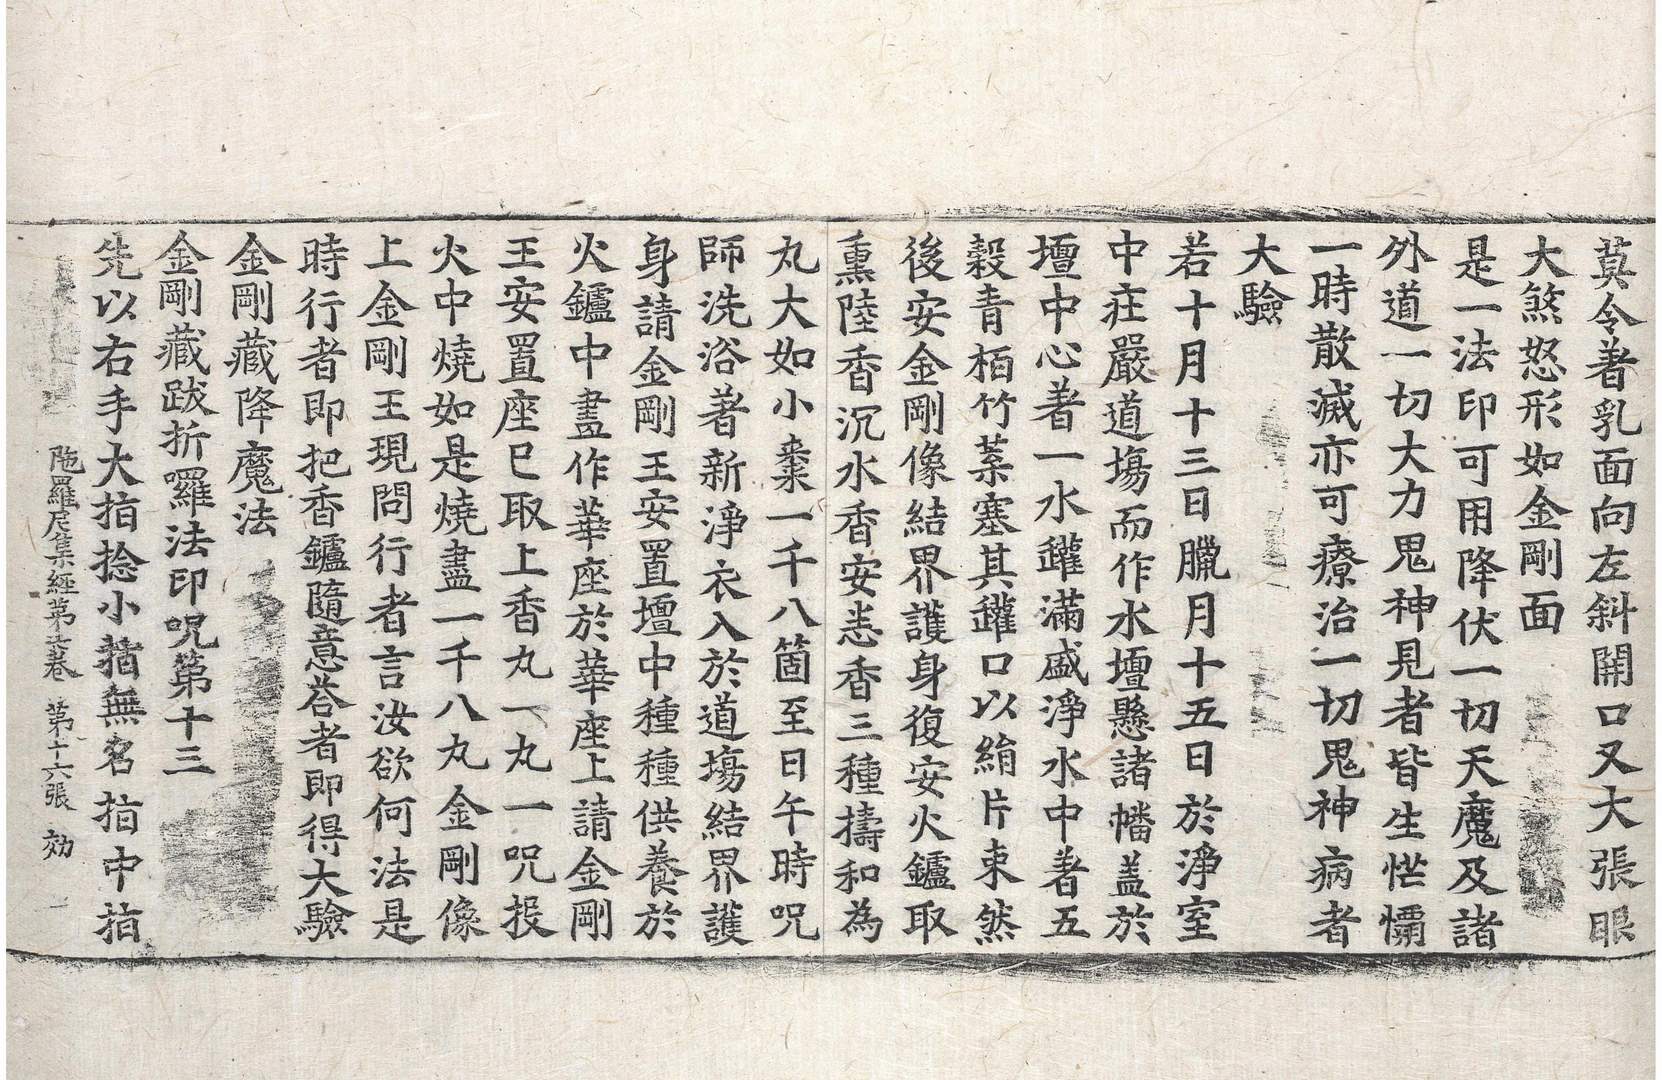 莫令著乳面向左斜開口又大張眼
大煞怒形如金剛面
是一法印可用降伏一切天魔及諸
外道一切大力鬼神見者皆生恾懼
一時散滅亦可療治一切鬼神病者
大驗
若十月十三日臘月十五日於淨室
中庄嚴道塲而作水壇懸諸幡盖於
壇中心著一水鑵滿盛淨水中著五
穀青栢竹葉塞其鑵口以絹片束然
後安金剛像結界護身復安火鑪取
熏陸香沉水香安悉香三種擣和為
丸大如小棗一千八箇至日午時呪
師洗浴著新淨衣入於道塲結界護
身請金剛王安置壇中種種供養於
火鑪中畫作華座於華座上請金剛
王安置座已取上香丸一丸一呪投
火中燒如是燒盡一千八丸金剛像
上金剛王現問行者言汝欲何法是
時行者即把香鑪隨意荅者即得大驗
金剛藏降魔法
金剛藏跋折囉法印呪第十三
先以右手大指捻小指無名指中指
陁羅尼集經第七卷 第十六張 効